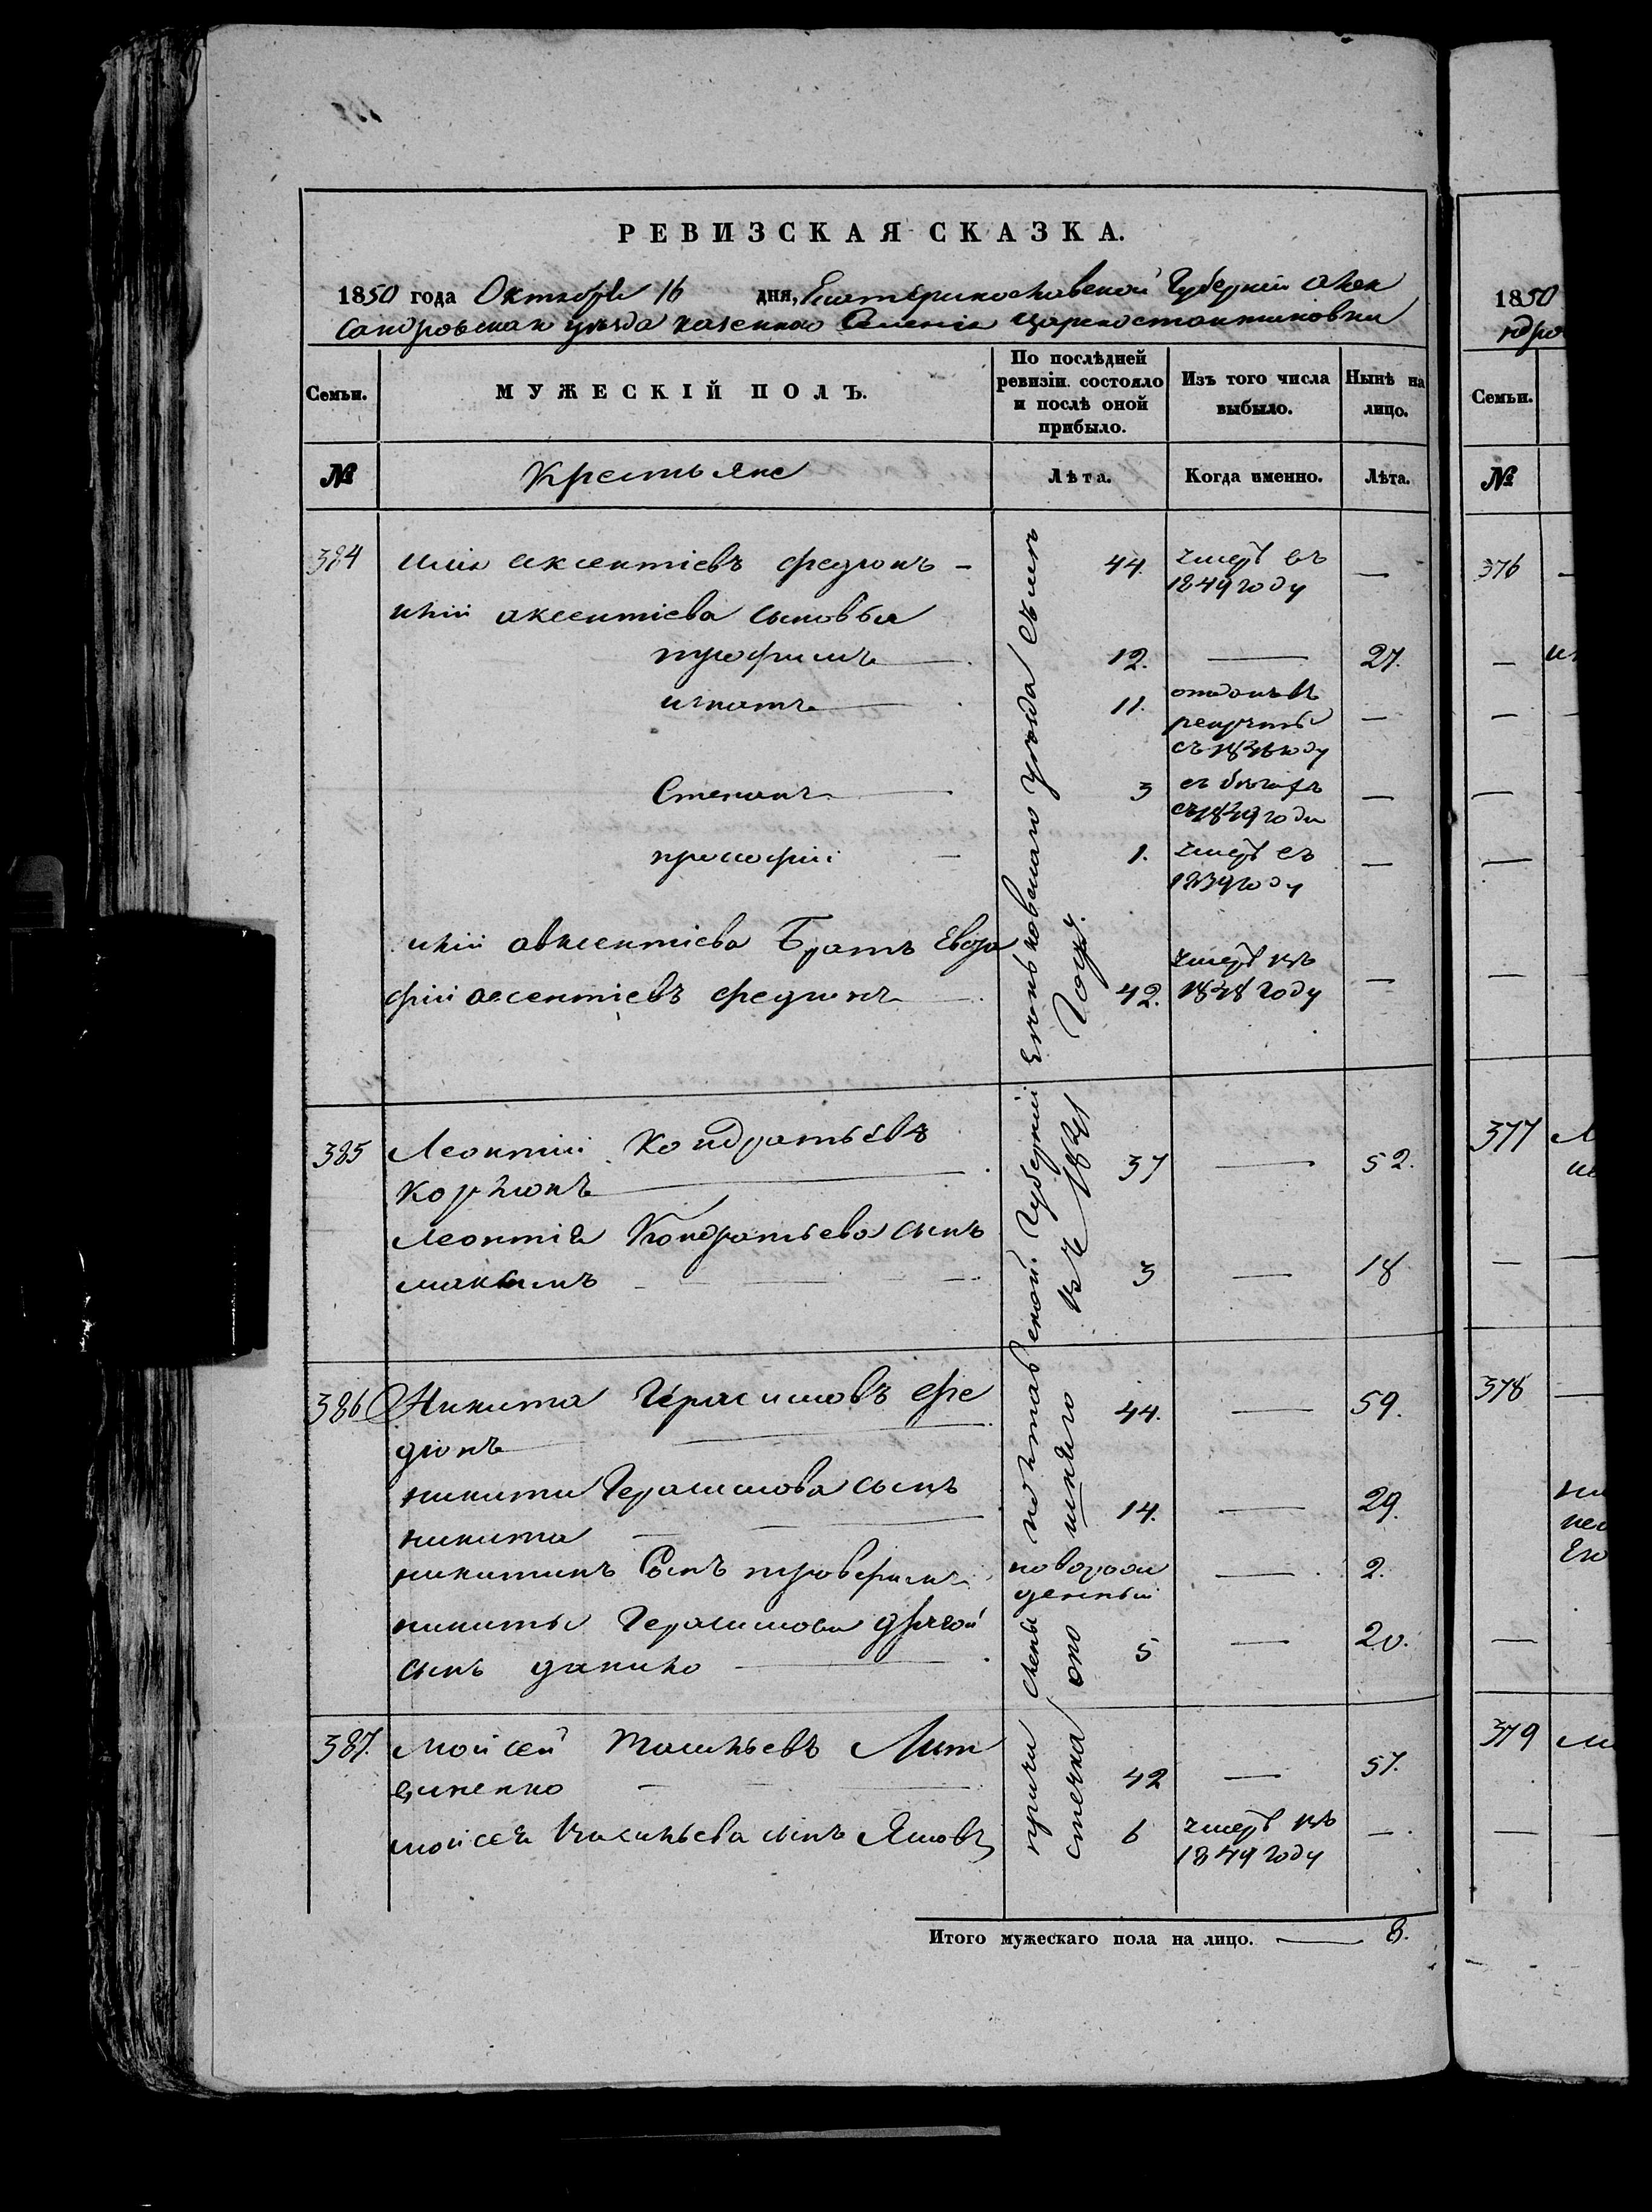 РЕВИЗСКАЯ СКАЗКА.
1850 года Октября 16 дня, Екатеринославской Губерніи Алек
сандровскаго уезда казенного Селенія Царекостантиновки
Семьи.
МУЖЕСКІЙ ПОЛЪ.
По послѣдней ревизіи состояло и послѣ оной прибыло.
Изъ того числа выбыло.
Нынѣ на лицо.
№ Крестьяне Лѣта. Когда именно. Лѣта.
384 илія аксентіевъ федюнъ - 44. умеръ въ 1849 году —
иліи аксентіева сыновья
трофимъ — 12. — 27.
игнатъ — 11. отданъ въ рекруты —
Степанъ — 3 въ бегахъ съ 1849 года —
прокофій — 1. умеръ въ 1839 году —
иліи авксентіева Братъ Евста
фій аксентіевъ федюнъ — 42. умеръ въ 1848 году —
385 Леонтій Кондратьевъ
Коржонъ — 37 — 52.
Леонтія Кондратьева сынъ
максимъ — 3 — 18
386 Никита Герасимовъ фе 44. — 59.
дюнъ
никиты Герасимова сынъ
никита — 14. — 29.
никитинъ Сынъ трофимъ новорож денный — 2.
никиты Герасимова другой
сынъ данило — 5 — 20.
387. Моисей Васильевъ Лит
виненко — 42 — 57.
моисея Васильева сынъ Яковъ 6 умеръ въ 1849 году —
причи слены полтавской Губерніи уезда съ
местечка въ Году.
Итого мужескаго пола на лицо. — 8.
1850
ндро
Семьи.
№
376
377
378
379